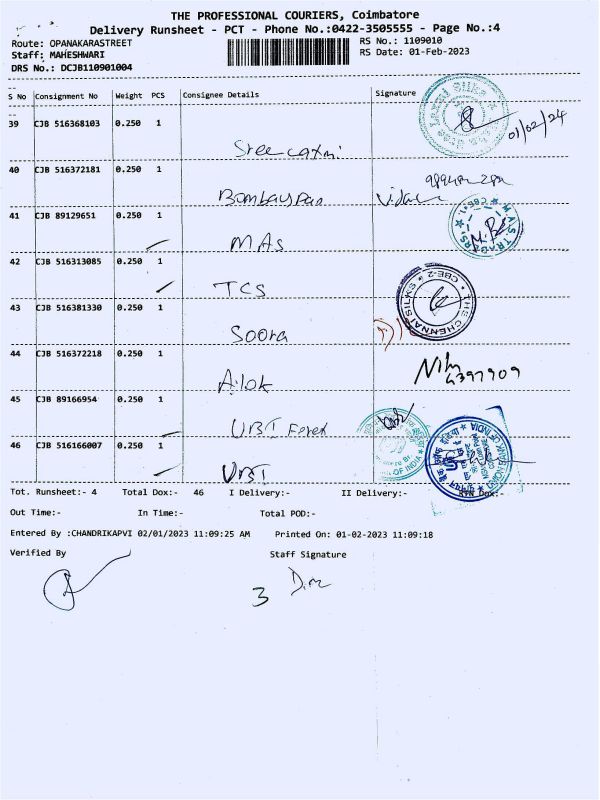 THE PROFESSIONAL COURIERS, Coimbatore
Delivery Runsheet - PCT - Phone No.:0422-3505555 - Page No.:4
Route: OPANAKARASTREET RS No.: 1109010
Staff: MAHESHWARI RS Date: 01-Feb-2023
DRS No.: DCJB110901004
S No Consignment No Weight PCS Consignee Details Signature
39 CJB 516368103 0.250 1
01/02/24
40 CJB 516372181 0.250 1
41 CJB 89129651 0.250 1
M.A.S. TRADERS
MAS
42 CJB 516313085 0.250 1
THE CHENNAI SILKS CBE-2
TCS
43 CJB 516381330 0.250 1
Soora
44 CJB 516372218 0.250 1
9397909
Ailok
45 CJB 89166954 0.250 1
UBI Forex
OF INDIA
46 CJB 516166007 0.250 1
BANK OF INDIA
UBI
Tot. Runsheet:- 4 Total Dox:- 46 I Delivery:- II Delivery:- RTN Dox:-
Out Time:- In Time:- Total POD:-
Entered By :CHANDRIKAPVI 02/01/2023 11:09:25 AM Printed On: 01-02-2023 11:09:18
Verified By Staff Signature
3